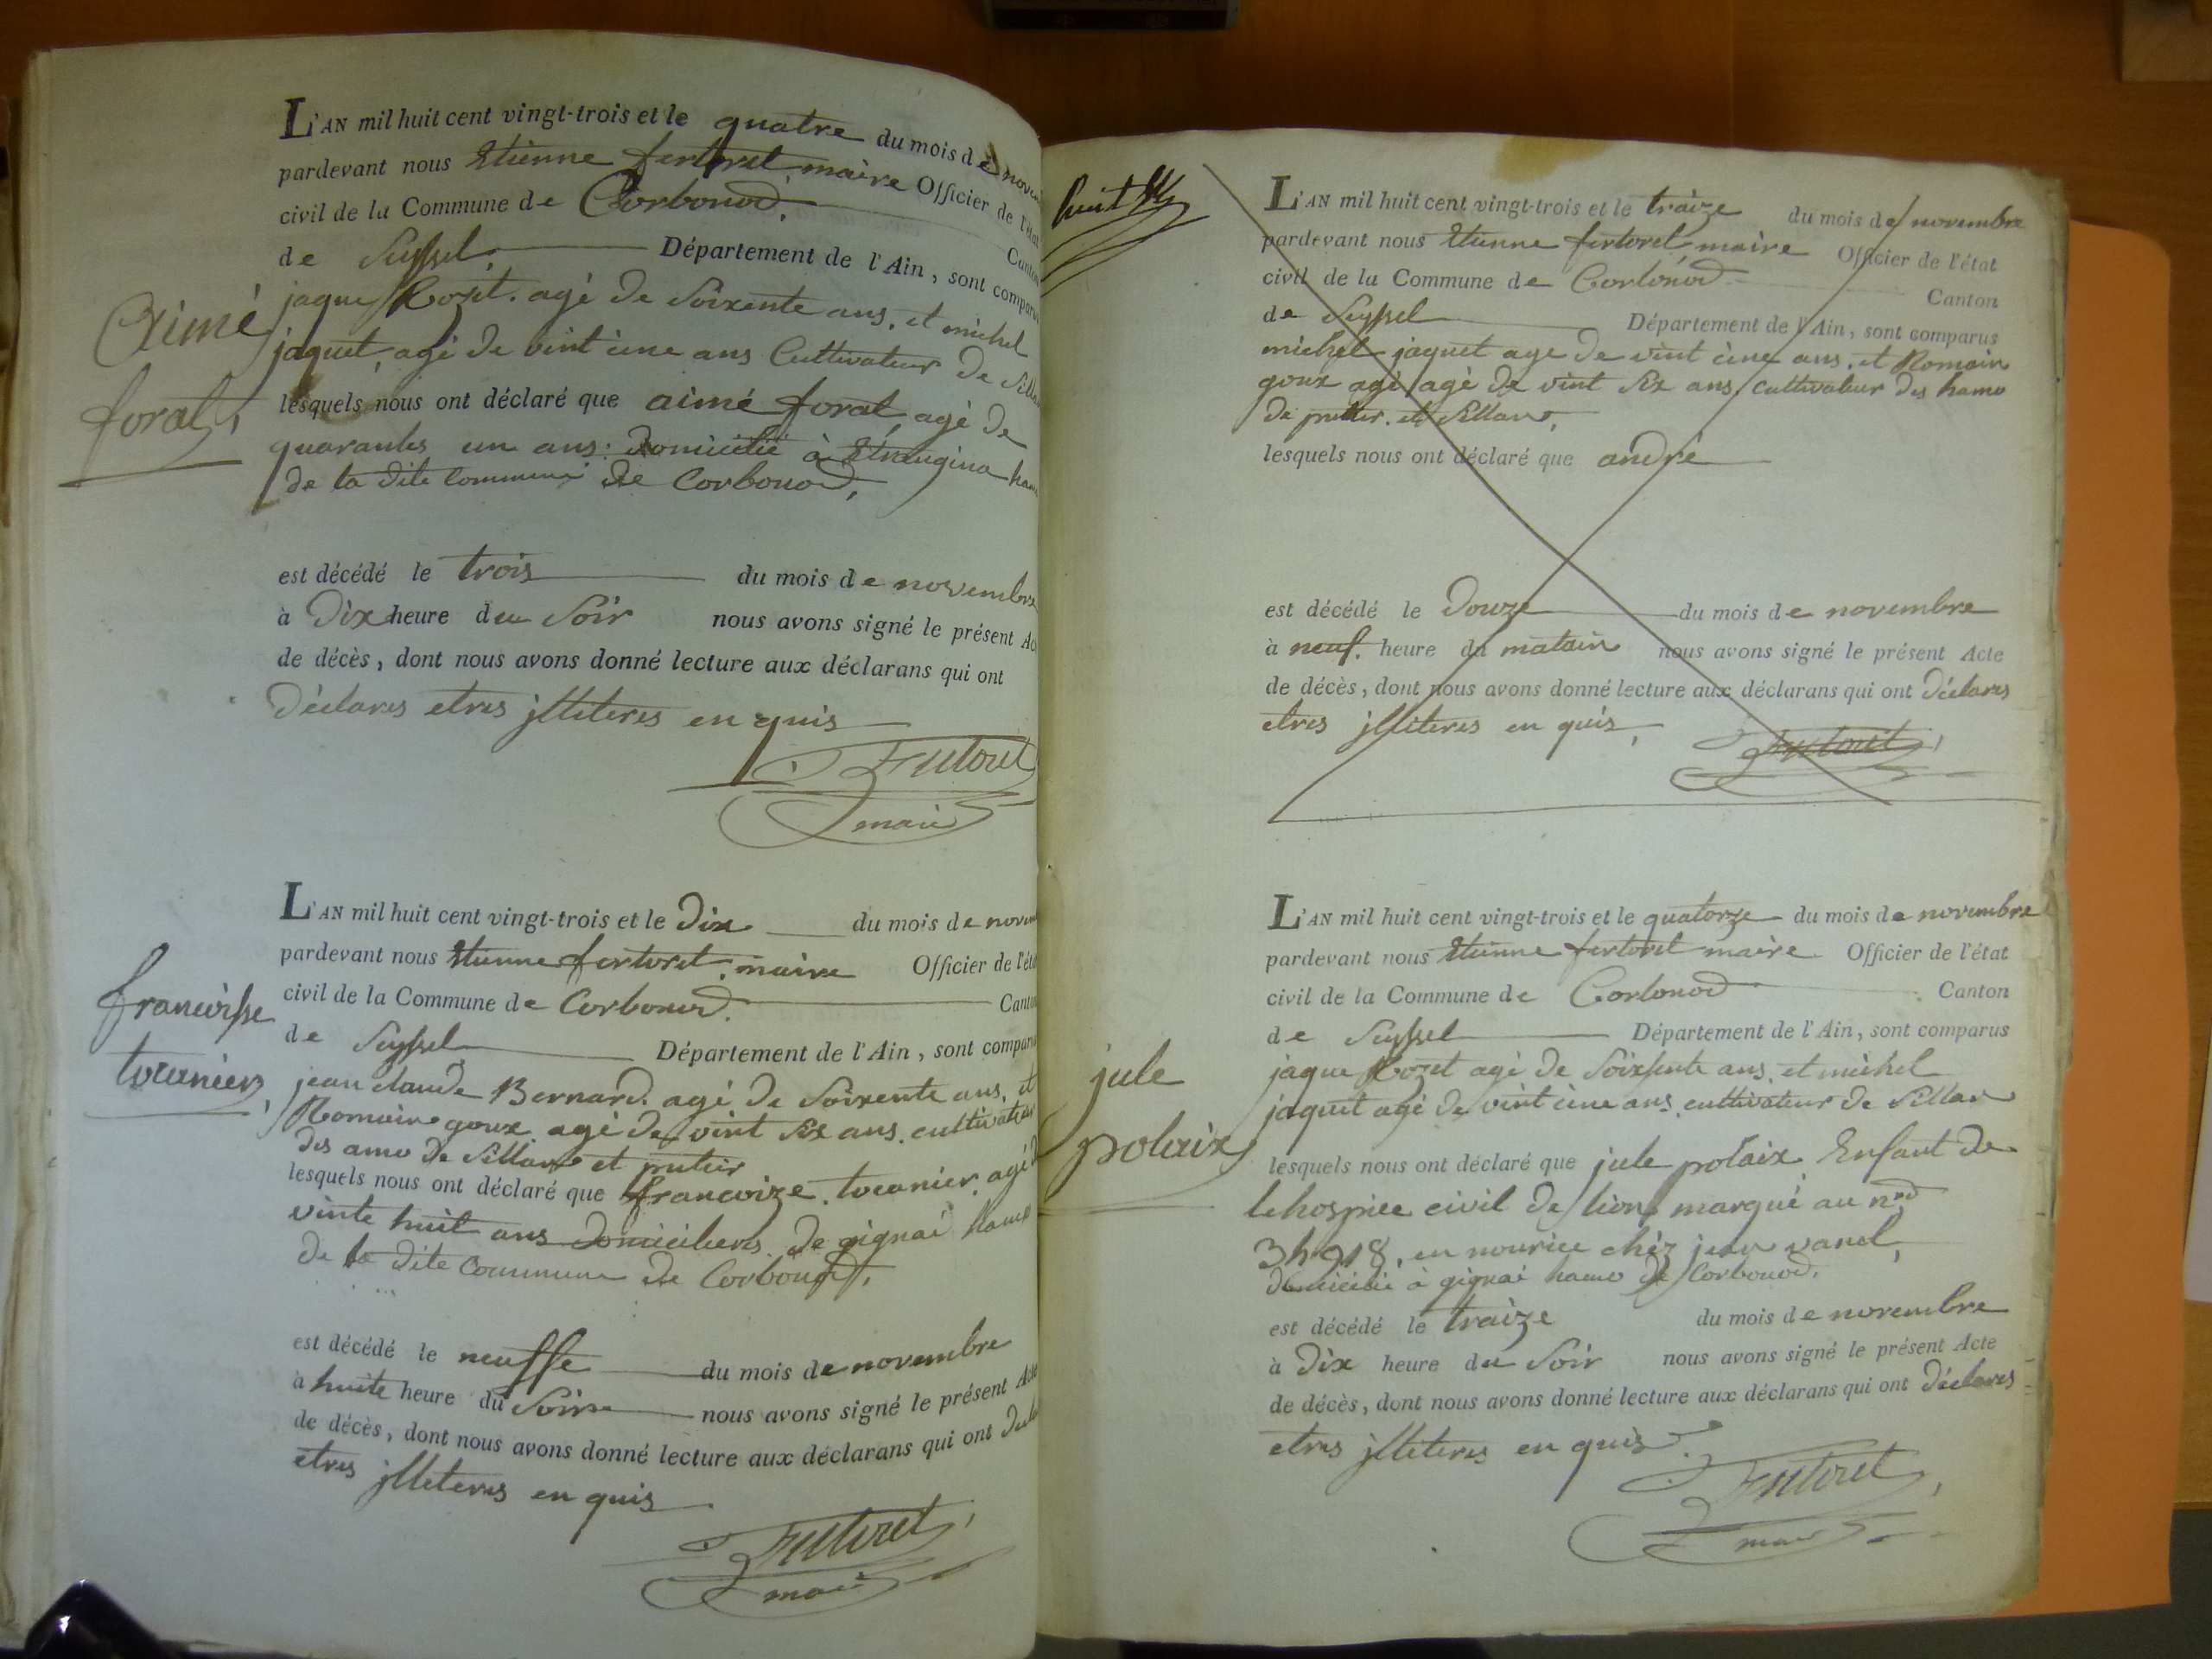 L'AN mil huit cent vingt-trois et le quatre du mois de
pardevant nous Etienne fertoret maire Officier de l'état
civil de la Commune de Corbonod, Canton
de Seyssel Département de l'Ain, sont comparus
jaque Rozet agé de soixente ans, et michel
jaquet, agé de vint cinc ans Cultivateur de
lesquels nous ont déclaré que aimé forat, agé de
quarantes un ans. domicilié à Etrangina
de la dite commune de Corbonod,
est décédé le trois du mois de novembre
à Dix heure du Soir nous avons signé le présent
de décès, dont nous avons donné lecture aux déclarans qui ont
Déclares etres jlliteres en quis
Fertoret
maire
Aimé
forat,
L'AN mil huit cent vingt-trois et le Dix du mois de
pardevant nous Etienne fertoret maire Officier de
civil de la Commune de Corbonod.
de Seyssel Département de l'Ain, sont comparus
jean claude Bernard. agé de Soixente ans, et
Romain goux agé de vint six ans. cultivateur
des amo de Sillan et
lesquels nous ont déclaré que francoize. tocanier. agé
vinte huit ans Domicilieres de gignai
de la dite commune de Corbonod,
est décédé le neuffe du mois de novembre
à huite heure du Soire nous avons signé le présent Acte
de décès, dont nous avons donné lecture aux déclarans qui ont
etres jlliteres en quis
Fertoret
maire
francoisse
tocanier,
huit
L'AN mil huit cent vingt-trois et le traize du mois de novembre
pardevant nous Etienne fertoret maire Officier de l'état
civil de la Commune de Corbonod Canton
de Seyssel Département de l'Ain, sont comparus
michel jaquet age de vint cinc ans. et Romain
goux agé agé de vint six ans cultivateur des hamo
de et Sillan,
lesquels nous ont déclaré que andré
est décédé le Douze du mois de novembre
à neuf. heure du matain nous avons signé le présent Acte
de décès, dont nous avons donné lecture aux déclarans qui ont Déclares
etres jlliteres en quis,
Fertoret
L'AN mil huit cent vingt-trois et le quatorze du mois de novembre
pardevant nous Etienne fertoret maire Officier de l'état
civil de la Commune de Corbonod Canton
de Seyssel Département de l'Ain, sont comparus
jaque Rozet agé de Soixsente ans et michel
jaquet agé de vint cinc ans cultivateur de Sillan
lesquels nous ont déclaré que jule polaix Enfant de
lehospice civil de lion marqué au
3h918, en nourice chéz jean vanel,
Domicilié à gignai hamo de Corbonod,
est décédé le traize du mois de novembre
à Dix heure du Soir nous avons signé le présent Acte
de décès, dont nous avons donné lecture aux déclarans qui ont Déclares
etres jlliteres en quis
Fertoret
maire
jule
polaix